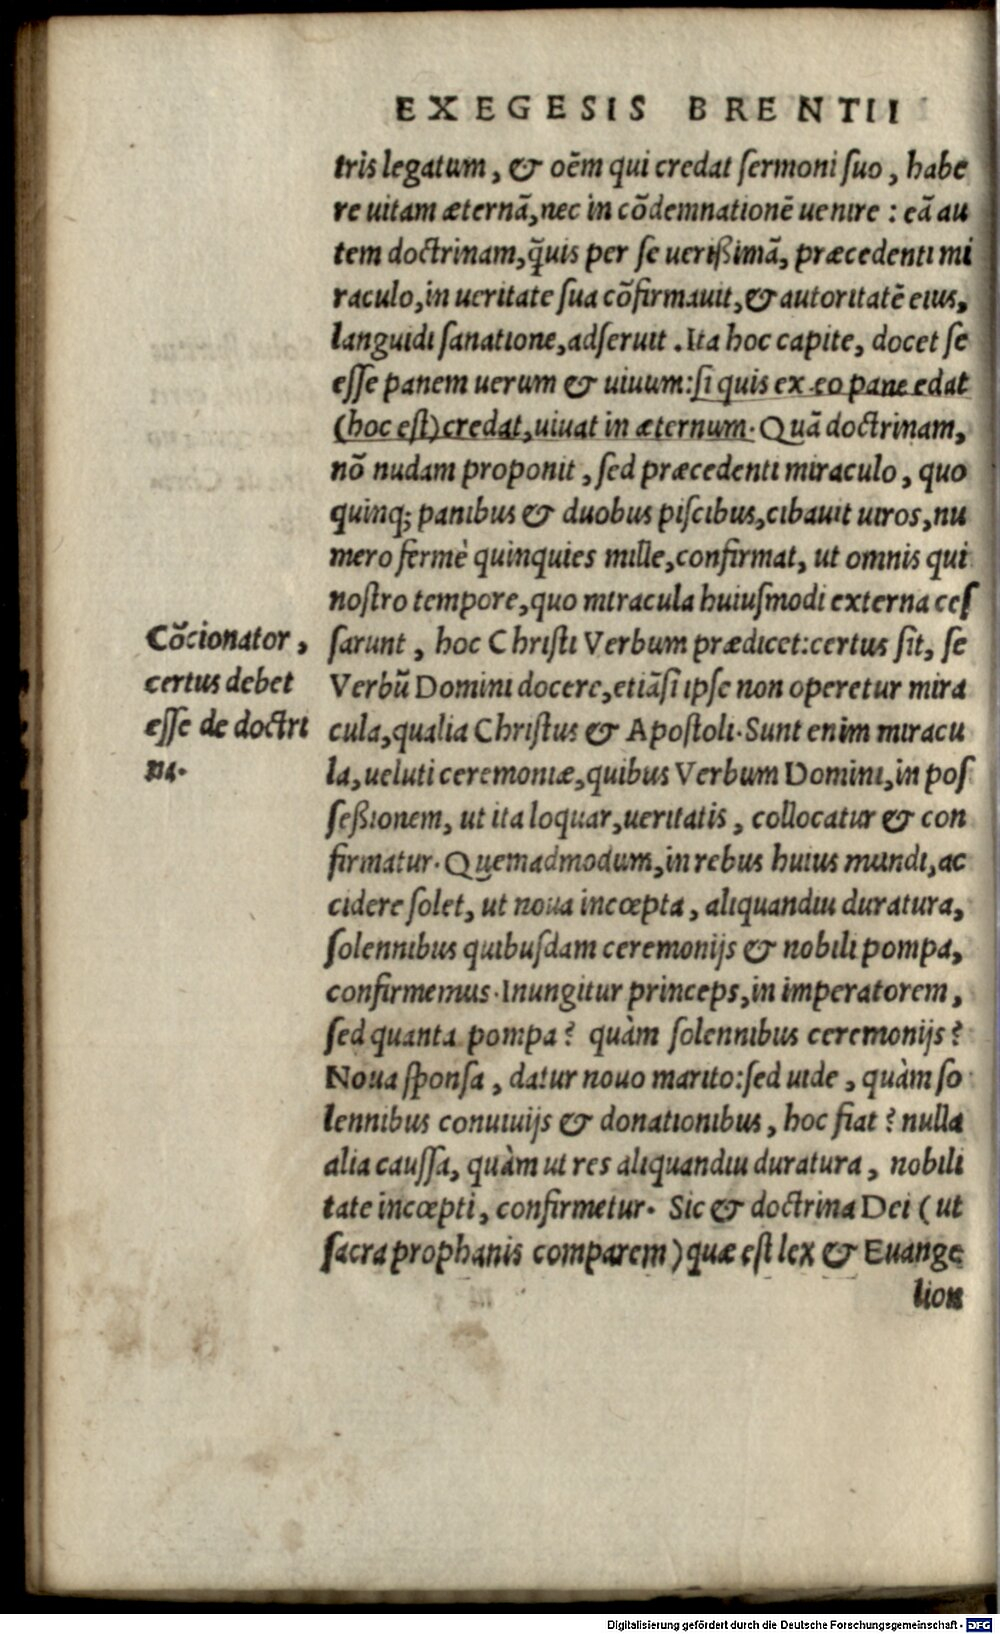 EXEGESIS BRENTII
tris legatum, & oẽm qui credat ſermoni ſuo, habe
re uitam æternã, nec in cõdemnationẽ uenire: eã au
tem doctrinam, q̃uis per ſe ueriſsimã, præcedenti mi
raculo, in ueritate ſua cõfirmauit, & autoritatẽ eius,
languidi ſanatione, adſeruit. Ita hoc capite, docet ſe
eſſe panem uerum & uiuum: ſi quis ex eo pane edat
(hoc eſt) credat, uiuat in æternum. Quã doctrinam,
nõ nudam proponit, ſed præcedenti miraculo, quo
quinq; panibus & duobus piſcibus, cibauit uiros, nu
mero fermè quinquies mille, confirmat, ut omnis qui
noſtro tempore, quo miracula huiuſmodi externa ceſ
ſarunt, hoc Chriſti Verbum prædicet: certus ſit, ſe
Verbũ Domini docere, etiãſi ipſe non operetur mira
cula, qualia Chriſtus & Apoſtoli. Sunt enim miracu
la, ueluti ceremoniæ, quibus Verbum Domini, in poſ
ſeſsionem, ut ita loquar, ueritatis, collocatur & con
firmatur. Quemadmodum, in rebus huius mundi, ac
cidere ſolet, ut noua incœpta, aliquandiu duratura,
ſolennibus quibuſdam ceremonijs & nobili pompa,
confirmemus. Inungitur princeps, in imperatorem,
ſed quanta pompa? quàm ſolennibus ceremonijs?
Noua ſponſa, datur nouo marito: ſed uide, quàm ſo
lennibus conuiuijs & donationibus, hoc fiat? nulla
alia cauſſa, quàm ut res aliquandiu duratura, nobili
tate incœpti, confirmetur. Sic & doctrina Dei (ut
ſacra prophanis comparem) quæ eſt lex & Euange
lion
Cõcionator,
certus debet
eſſe de doctri
na.
Digitalisierung gefördert durch die Deutsche Forschungsgemeinschaft - DFG